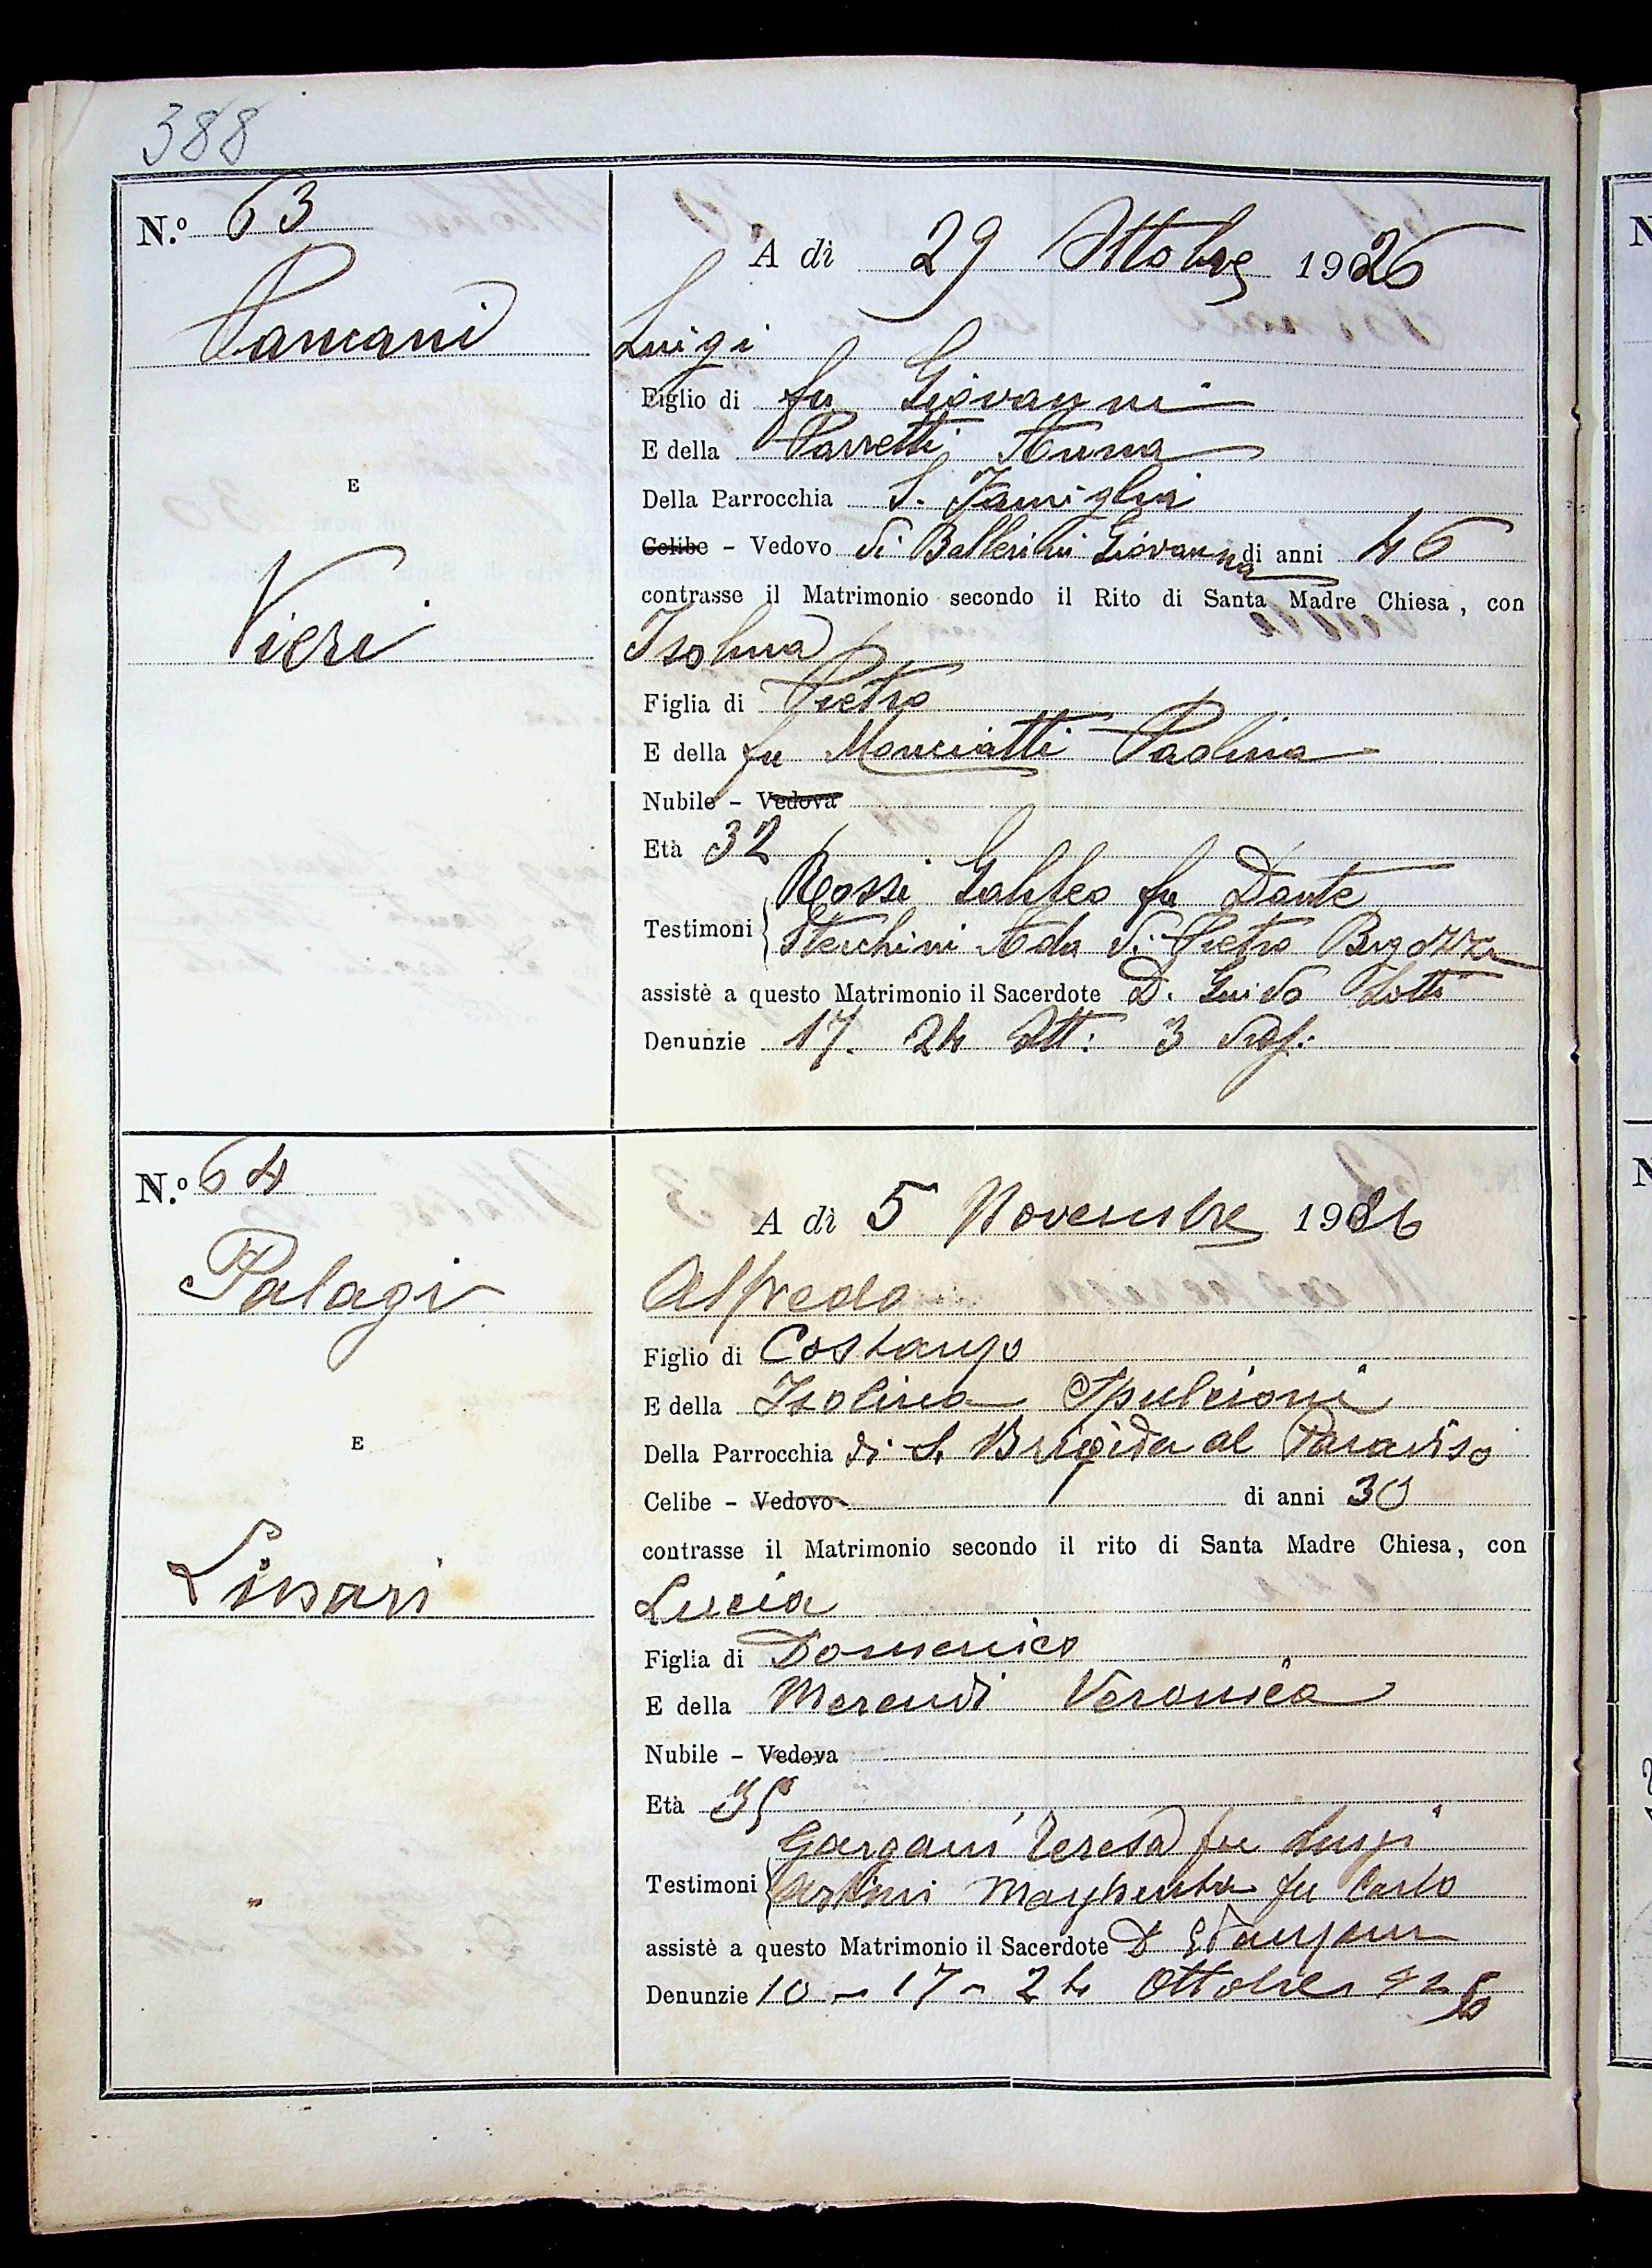 388
N.º 63
A dì 29 Ottobre 1926
Pancani
Luigi
Figlio di fu Giovanni
E della Parretti Anna
Della Parrocchia S. Famiglia
E
Celibe - Vedovo di Ballerini Giovanna di anni 46
contrasse il Matrimonio secondo il Rito di Santa Madre Chiesa, con
Vieri
Isolina
Figlia di Pietro
E della fu Monciatti Paolina
Nubile - Vedova
Età 32
Rossi Galileo fu Dante
Testimoni Sterchini Ada di Pietro
assistè a questo Matrimonio il Sacerdote D. Guido Lotti
Denunzie 17. 24 Ott: 3
N.º 64
A dì 5 Novembre 1926
Palagi
Alfredo
Figlio di Costanzo
E della Isolina Spulcioni
E
Della Parrocchia di S. Brigida al Paradiso
Celibe - Vedovo di anni 30
contrasse il Matrimonio secondo il rito di Santa Madre Chiesa, con
Linari
Lucia
Figlia di Domenico
E della Merendi Veronica
Nubile - Vedova
Età 35
Gargani Teresa fu Luigi
Testimoni Artini Margherita fu Carlo
assistè a questo Matrimonio il Sacerdote D
Denunzie 10 - 17 - 24 Ottobre 926